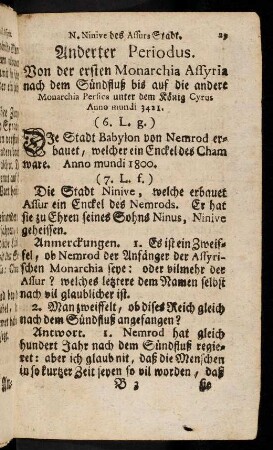 N. Ninive des Assurs Stadt. 29
Anderter Periodus.
Von der ersten Monarchia Assyria
nach dem Sündfluß bis auf die andere
Monarchia Persica unter dem König Cyrus
Anno mundi 3421.
(6. L. g.)
Die Stadt Babylon von Nemrod er-
bauet, welcher ein Enckel des Cham
ware. Anno mundi 1800.
(7. L. f.)
Die Stadt Ninive, welche erbauet
Assur ein Enckel des Nemrods. Er hat
sie zu Ehren seines Sohns Ninus, Ninive
geheissen.
Anmerckungen. 1. Es ist ein Zweif-
fel, ob Nemrod der Anfänger der Assyri-
schen Monarchia seye: oder vilmehr der
Assur? welches letztere dem Namen selbst
nach vil glaublicher ist.
2. Man zweiffelt, ob dises Reich gleich
nach dem Sündfluß angefangen?
Antwort. 1. Nemrod hat gleich
hundert Jahr nach dem Sündfluß regie-
ret: aber ich glaub nit, daß die Menschen
in so kurtzer Zeit seyen so vil worden, daß
B 3